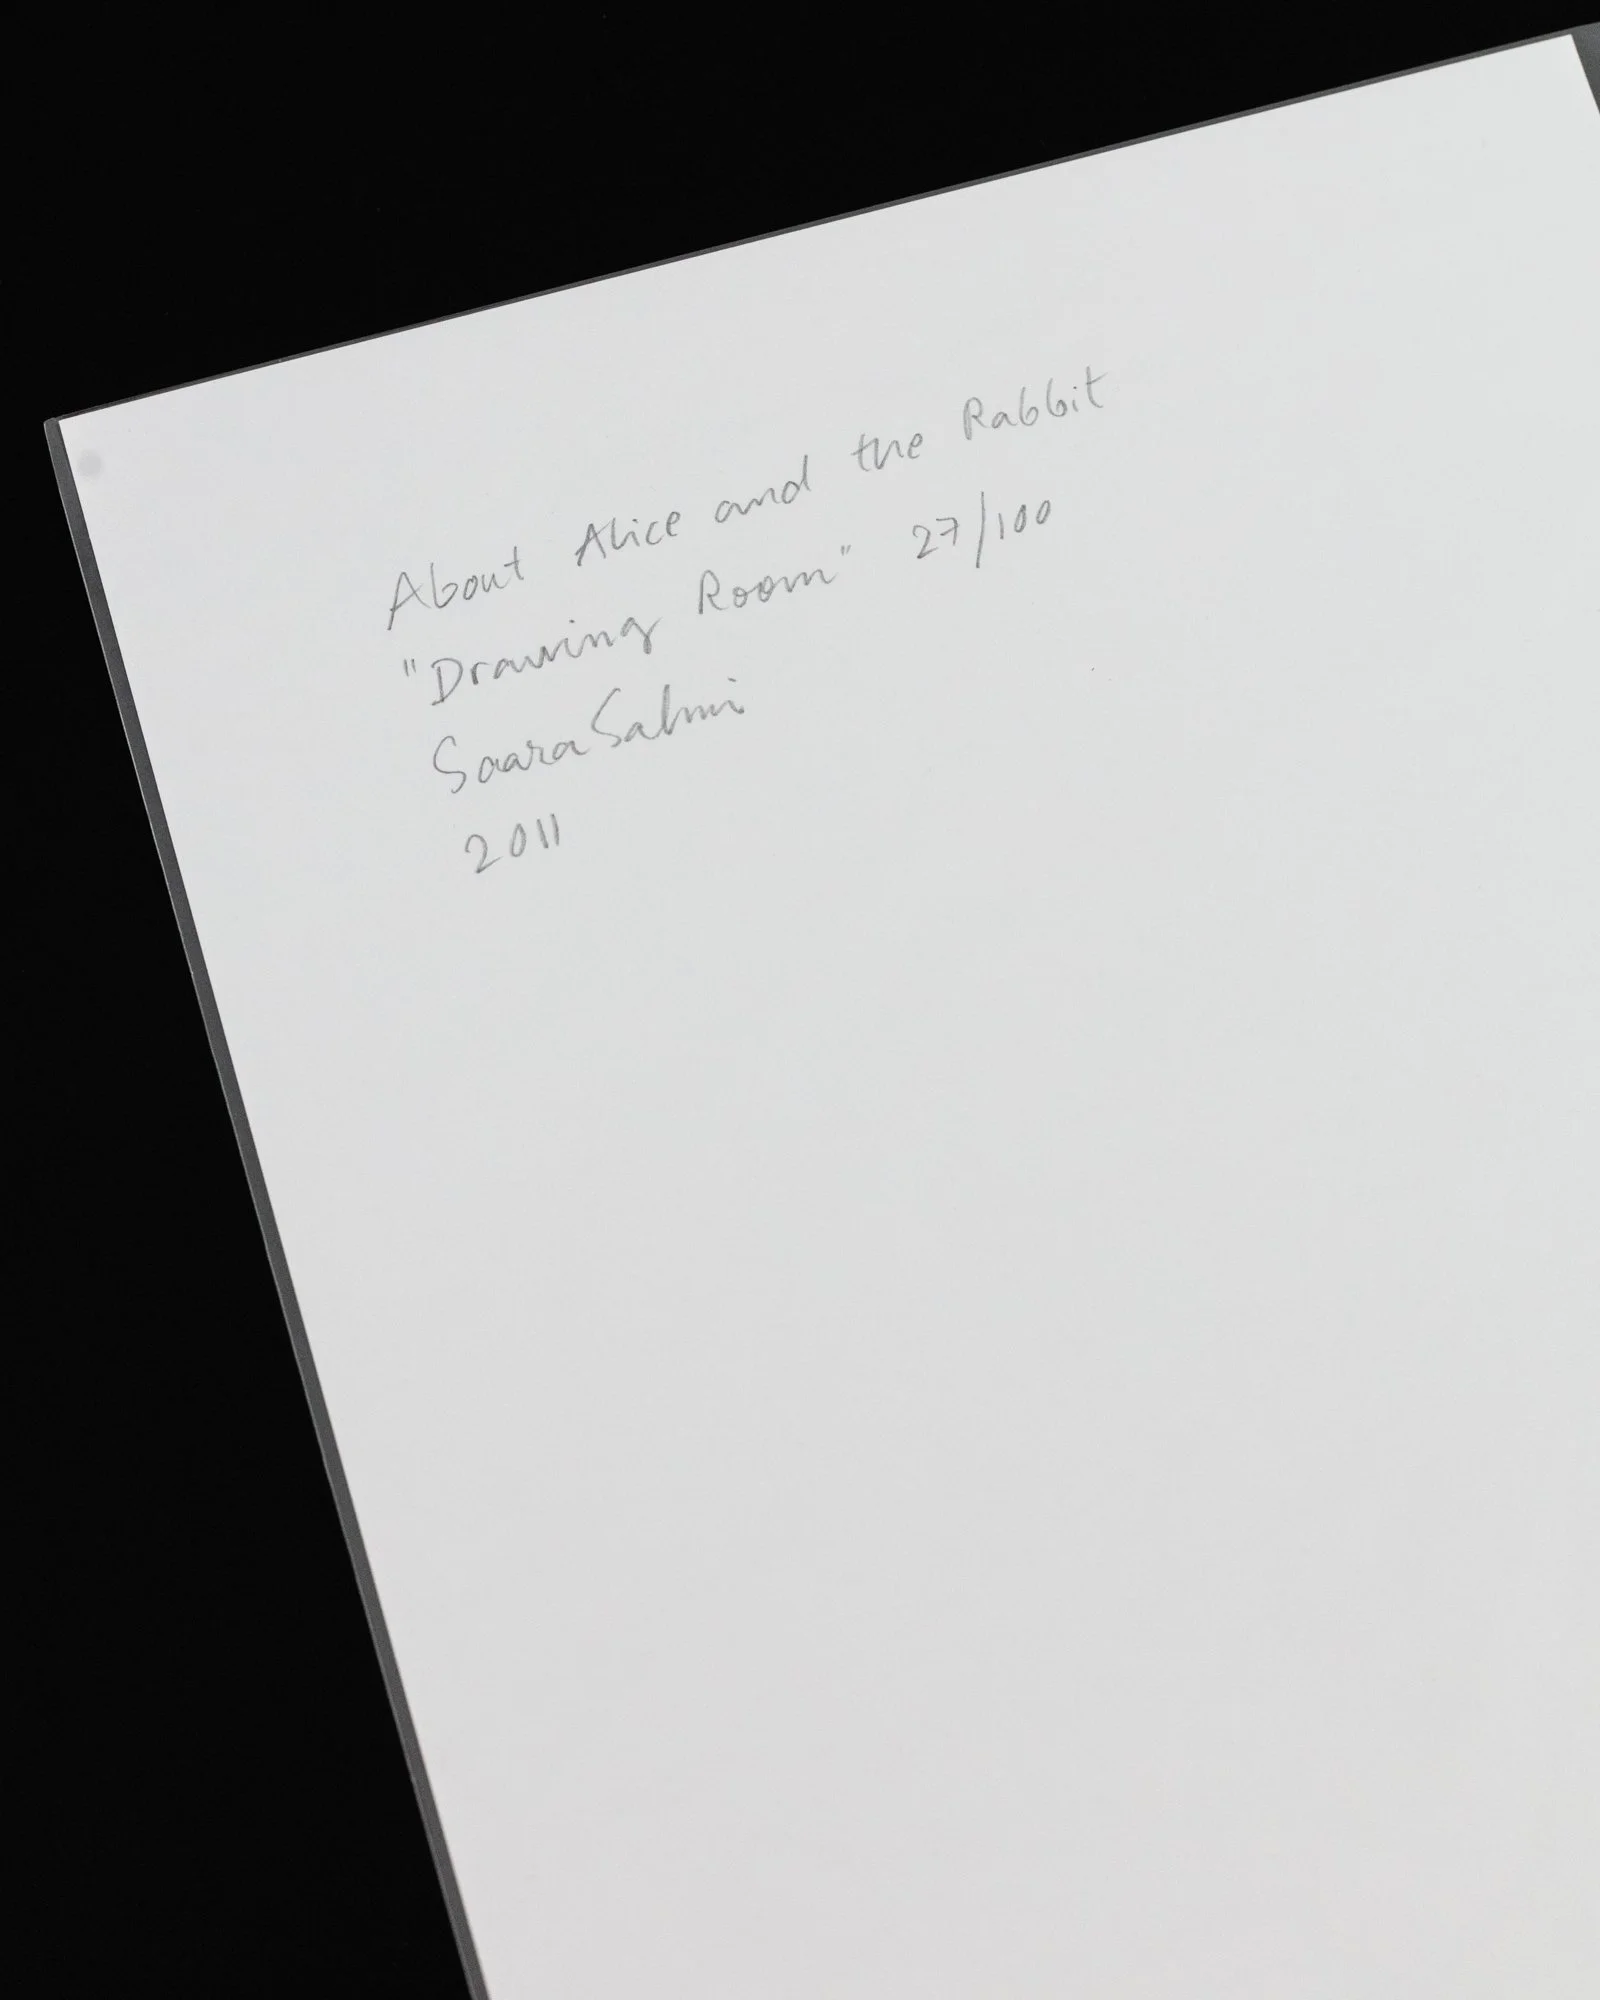 About Alice and the Rabbit
"Drawing Room" 27/100
Saara Salmi
2011